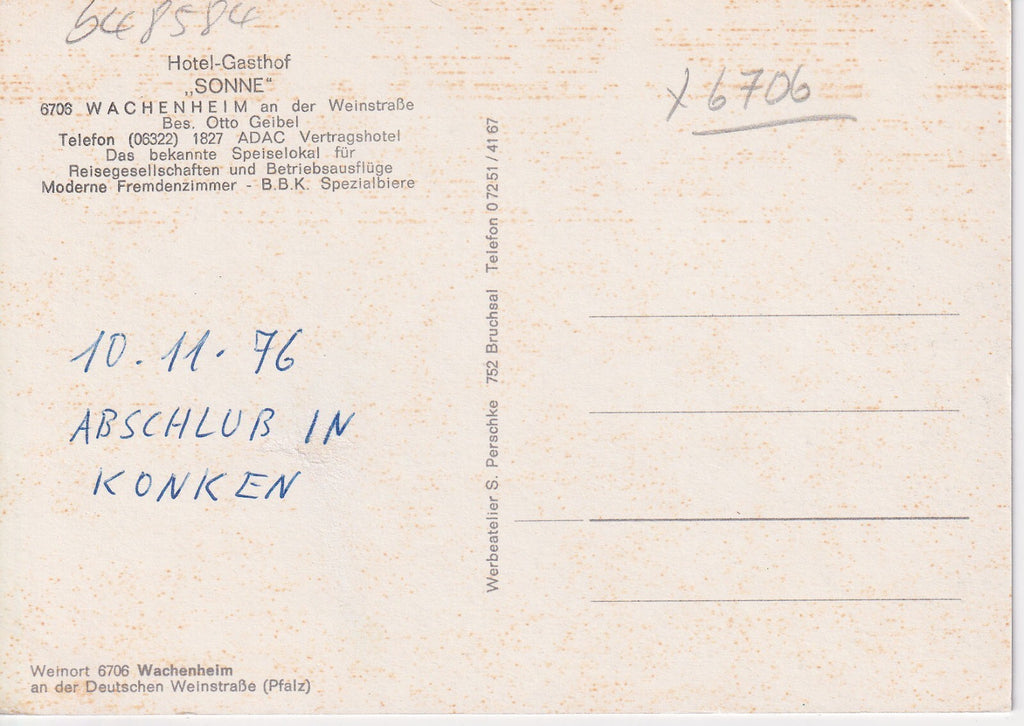 648584
Hotel-Gasthof
„SONNE“
6706 WACHENHEIM an der Weinstraße
Bes. Otto Geibel
Telefon (06322) 1827 ADAC Vertragshotel
Das bekannte Speiselokal für
Reisegesellschaften und Betriebsausflüge
Moderne Fremdenzimmer - B.B.K. Spezialbiere
x 6706
10. 11. 76
ABSCHLUß IN
KONKEN
Werbeatelier S. Perschke 752 Bruchsal Telefon 07251/4167
Weinort 6706 Wachenheim
an der Deutschen Weinstraße (Pfalz)